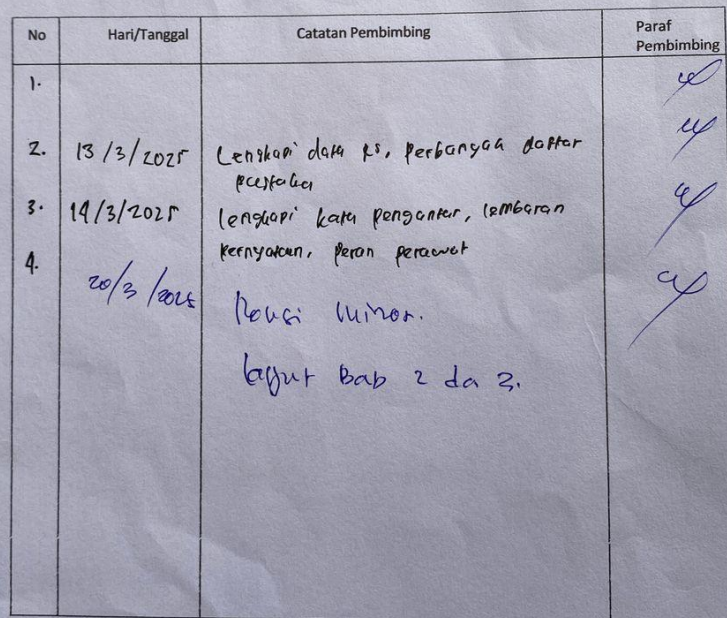 No Hari/Tanggal Catatan Pembimbing Paraf Pembimbing
1.
2. 13/3/2025 Lengkapi data RS, perbanyak daftar
pustaka
3. 19/3/2025 lengkapi kata pengantar, lembaran
pernyataan, peran perawat
4. 20/3/2025 Revisi minor.
lanjut Bab 2 da 3.